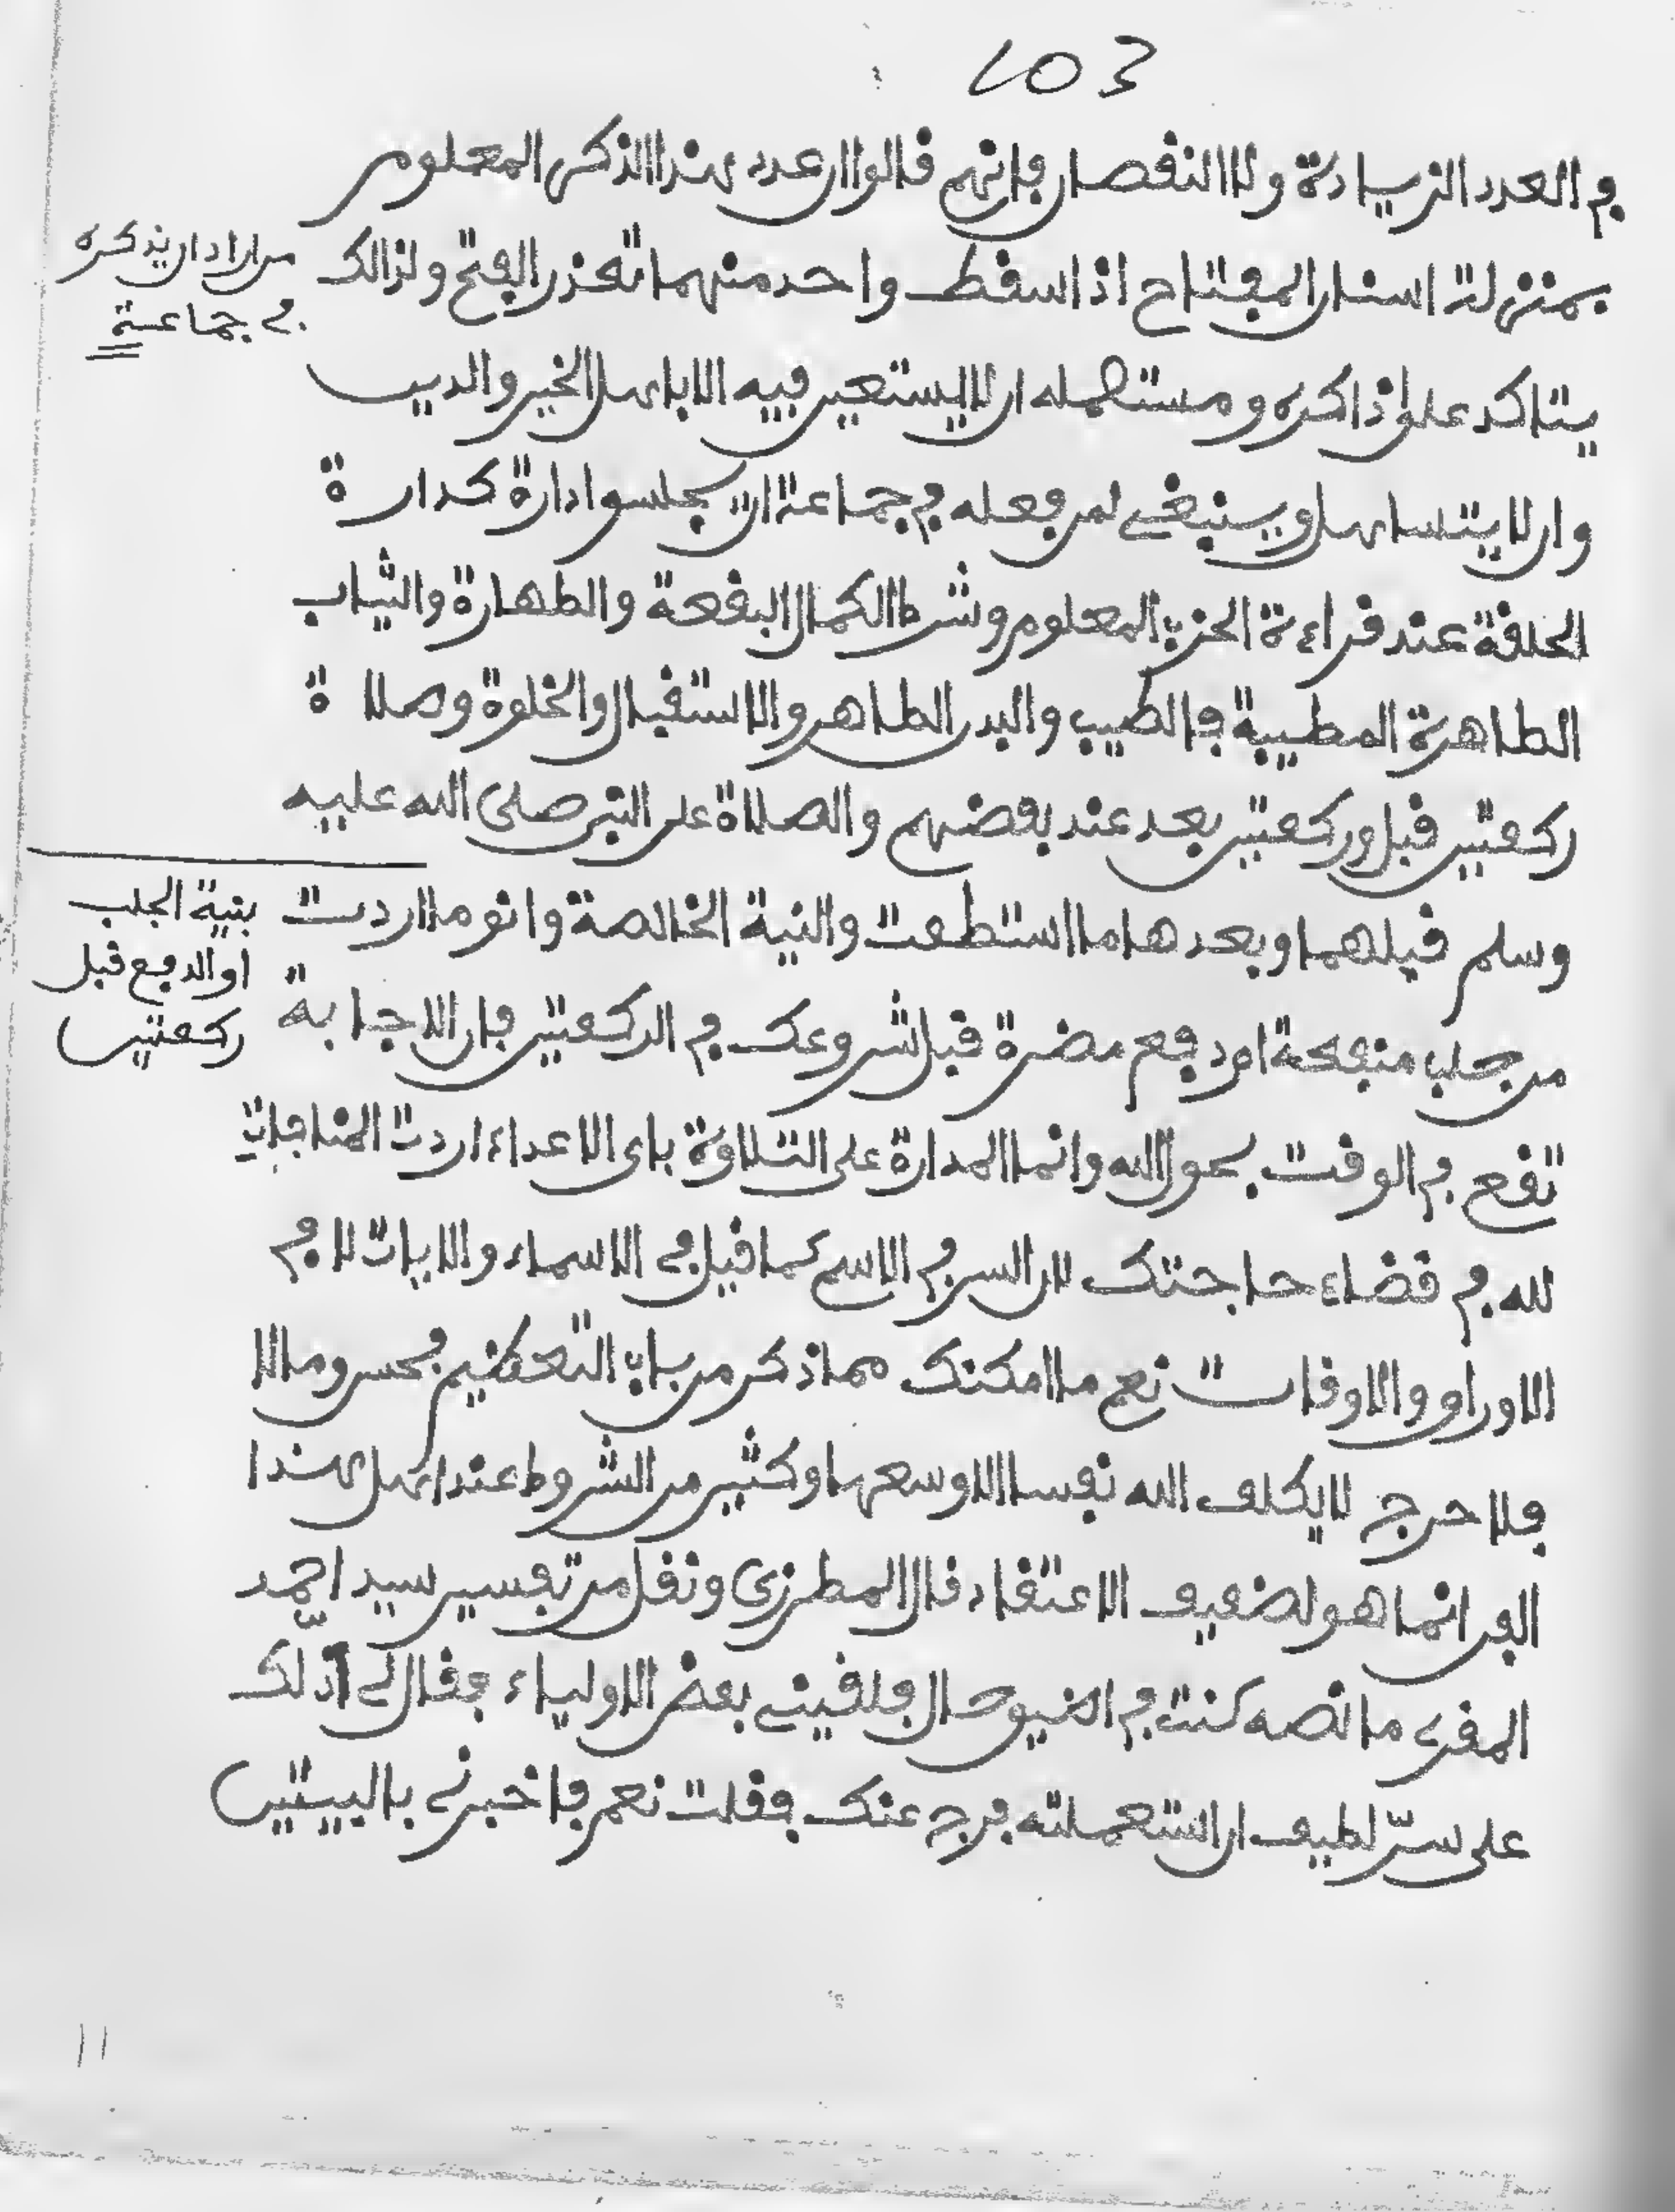 103
في العدد الزيادة ولا النقصان فإنهم قالوا ان عدد هذا الذكر المعلوم
بمنزلة اسنان المفتاح اذا سقط واحد منهما تعذر الفتح ولذالك
من اراد ان يذكره
في جماعة
يتاكد على ذاكره ومستعمله ان لا يستعين فيه الا باهل الخير والدين
وان لا يتساهل وينبغي لمن فعله في جماعة ان يجلسوا دارة كدارة
الحلقة عند قراءة الحزب المعلوم وشرط الكمال البقعة والطهارة والثياب
الطاهرة المطيبة بالطيب والبدن الطاهر والاستقبال والخلوة وصلاة
ركعتين قبل وركعتين بعد عند بعضهم والصلاة على النبي صلى الله عليه
وسلم قبلهما وبعدهما ما استطعت والنية الخالصة وانو ما اردت
بنية الجلب
او الدفع قبل
ركعتين
من جلب منفعة او دفع مضرة قبل شروعك في الركعتين فان الاجابة
تقع في الوقت بحول الله وانما المدارة على التلاوة باي الاعداد اردت المناجات
لله في قضاء حاجتك لان السر في الاسم كما قيل في الاسماء والايات لا في
الاوراق والاوقات نعم ما امكنك مما ذكر من باب التعظيم فحسن وما لا
فلا حرج لا يكلف الله نفسا الا وسعها وكثير من الشروط عند اهل هذا
الفن انما هو لضعيف الاعتقاد قال المطرزي ونقل من تفسير سيد احمد
المقري ما نصه كنت في اضيق حال فلقيني بعض الاولياء فقال لي ادلك
على سرّ لطيف ان استعملته فرج عنك فقلت نعم فاخبرني بالبيتين
11